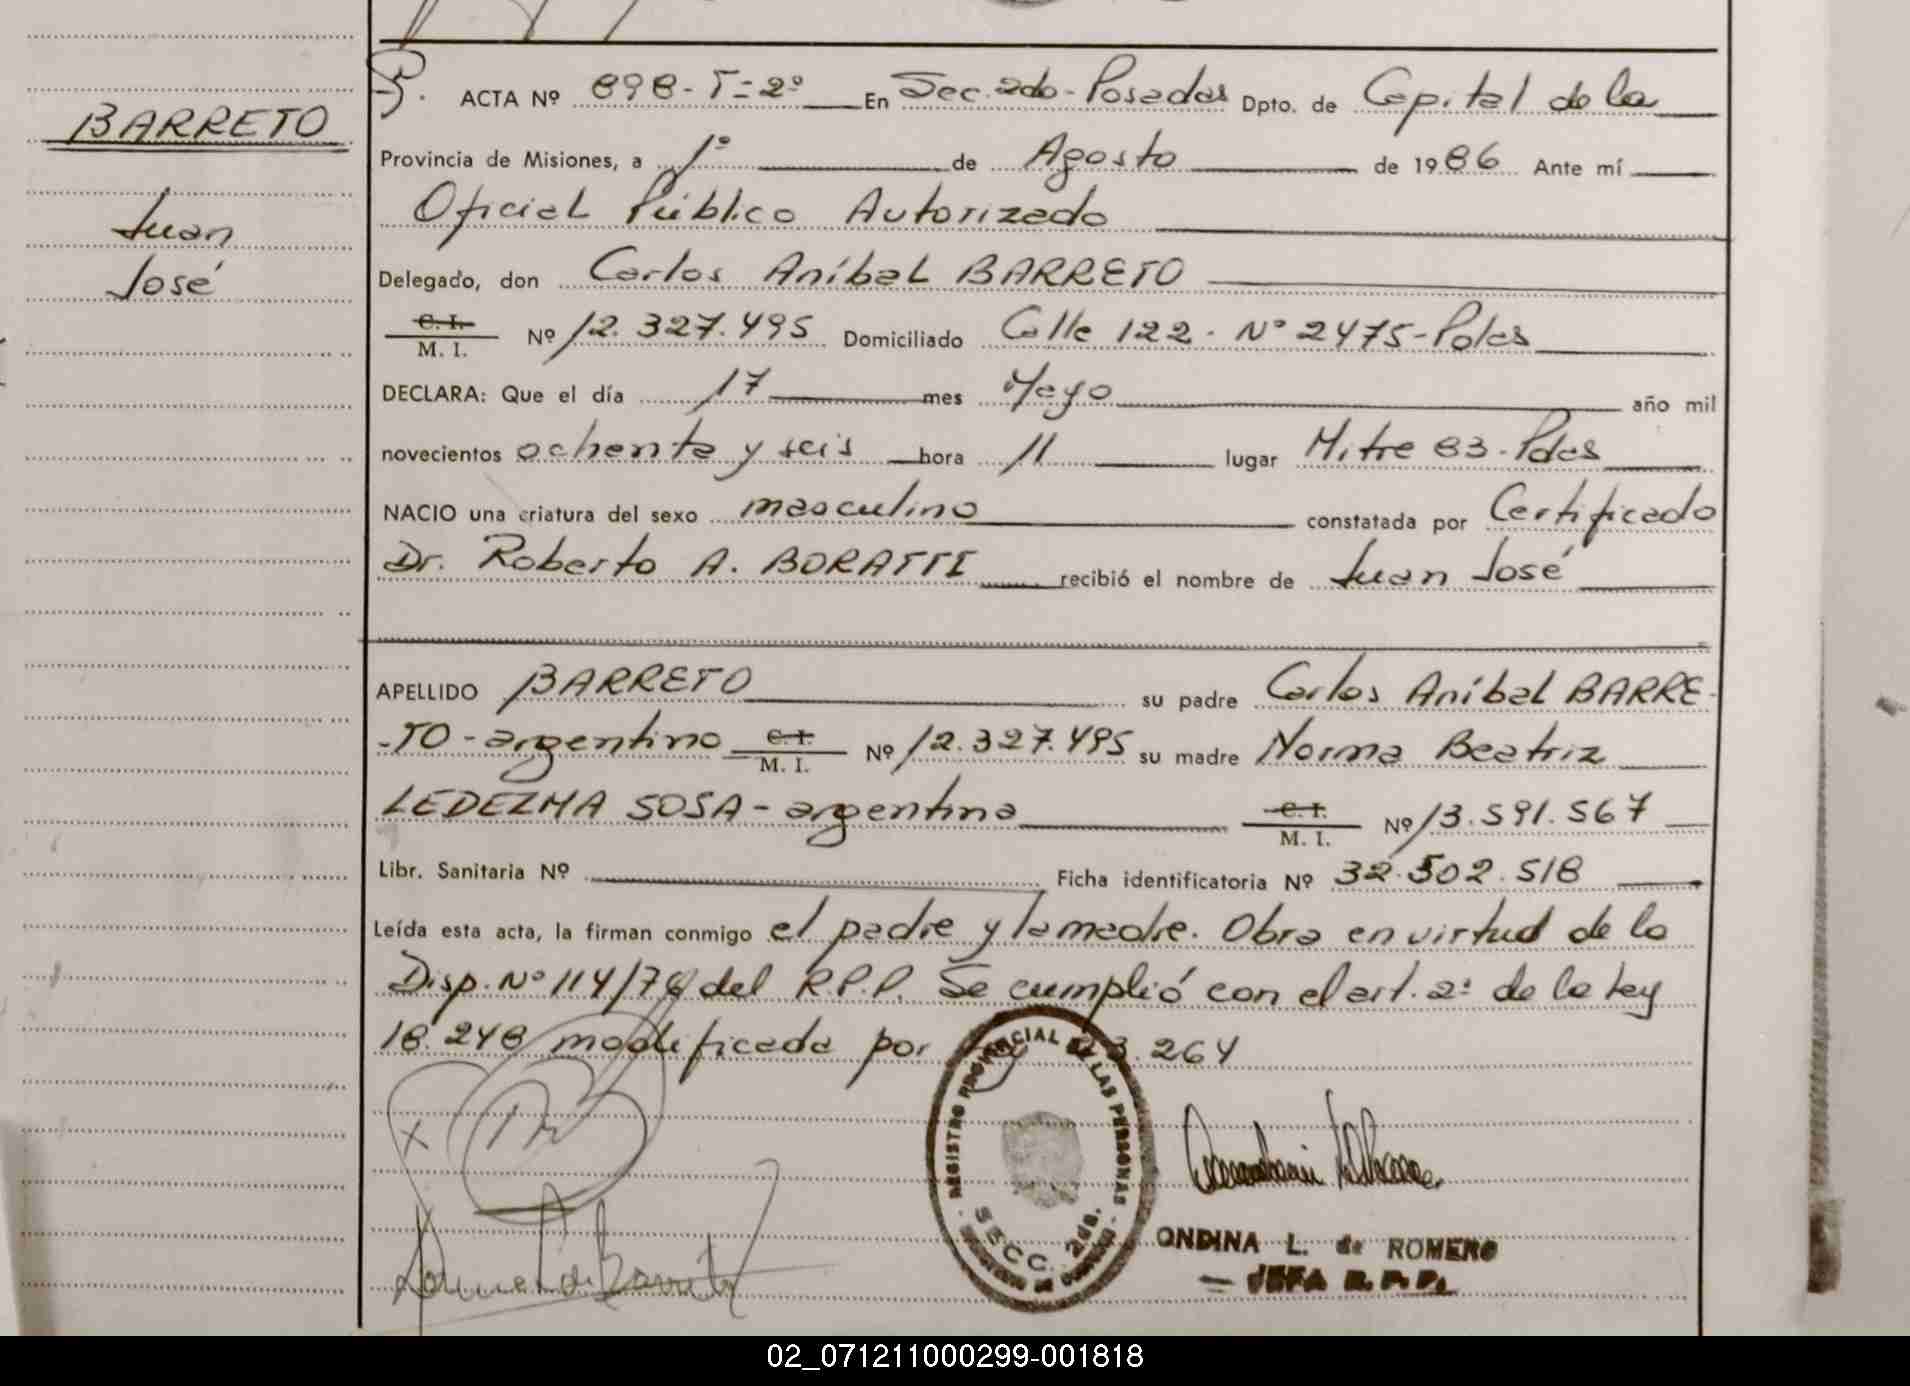 BARRETO
Juan
José
ACTA Nº 898-T=2º En Sec. 2do-Posadas Dpto. de Capital de la
Provincia de Misiones, a 1º de Agosto de 1986 Ante mí
Oficial Público Autorizado
Delegado, don Carlos Aníbal BARRETO
C. I.
M. I. Nº 12.327.495 Domiciliado Calle 122- Nº 2475-Pdas
DECLARA: Que el día 17 mes Mayo año mil
novecientos ochenta y seis hora 11 lugar Mitre 83-Pdas
NACIO una criatura del sexo masculino constatada por Certificado
Dr. Roberto A. BORATTI recibió el nombre de Juan José
APELLIDO BARRETO su padre Carlos Aníbal BARRE-
-TO-argentino C. I. M. I. Nº 12.327.495 su madre Norma Beatriz
LEDEZMA SOSA-argentina C. I. M. I. Nº 13.591.567
Libr. Sanitaria Nº Ficha identificatoria Nº 32.502.518
Leída esta acta, la firman conmigo el padre y la madre. Obra en virtud de la
Disp. Nº 114/76 del R.P.P. Se cumplió con el art. 2º de la Ley
18.248 modificada por Ley 23.264
REGISTRO PROVINCIAL DE LAS PERSONAS
SECC. 2da.
ONDINA L. de ROMERO
JEFA R. P. P.
02_071211000299-001818